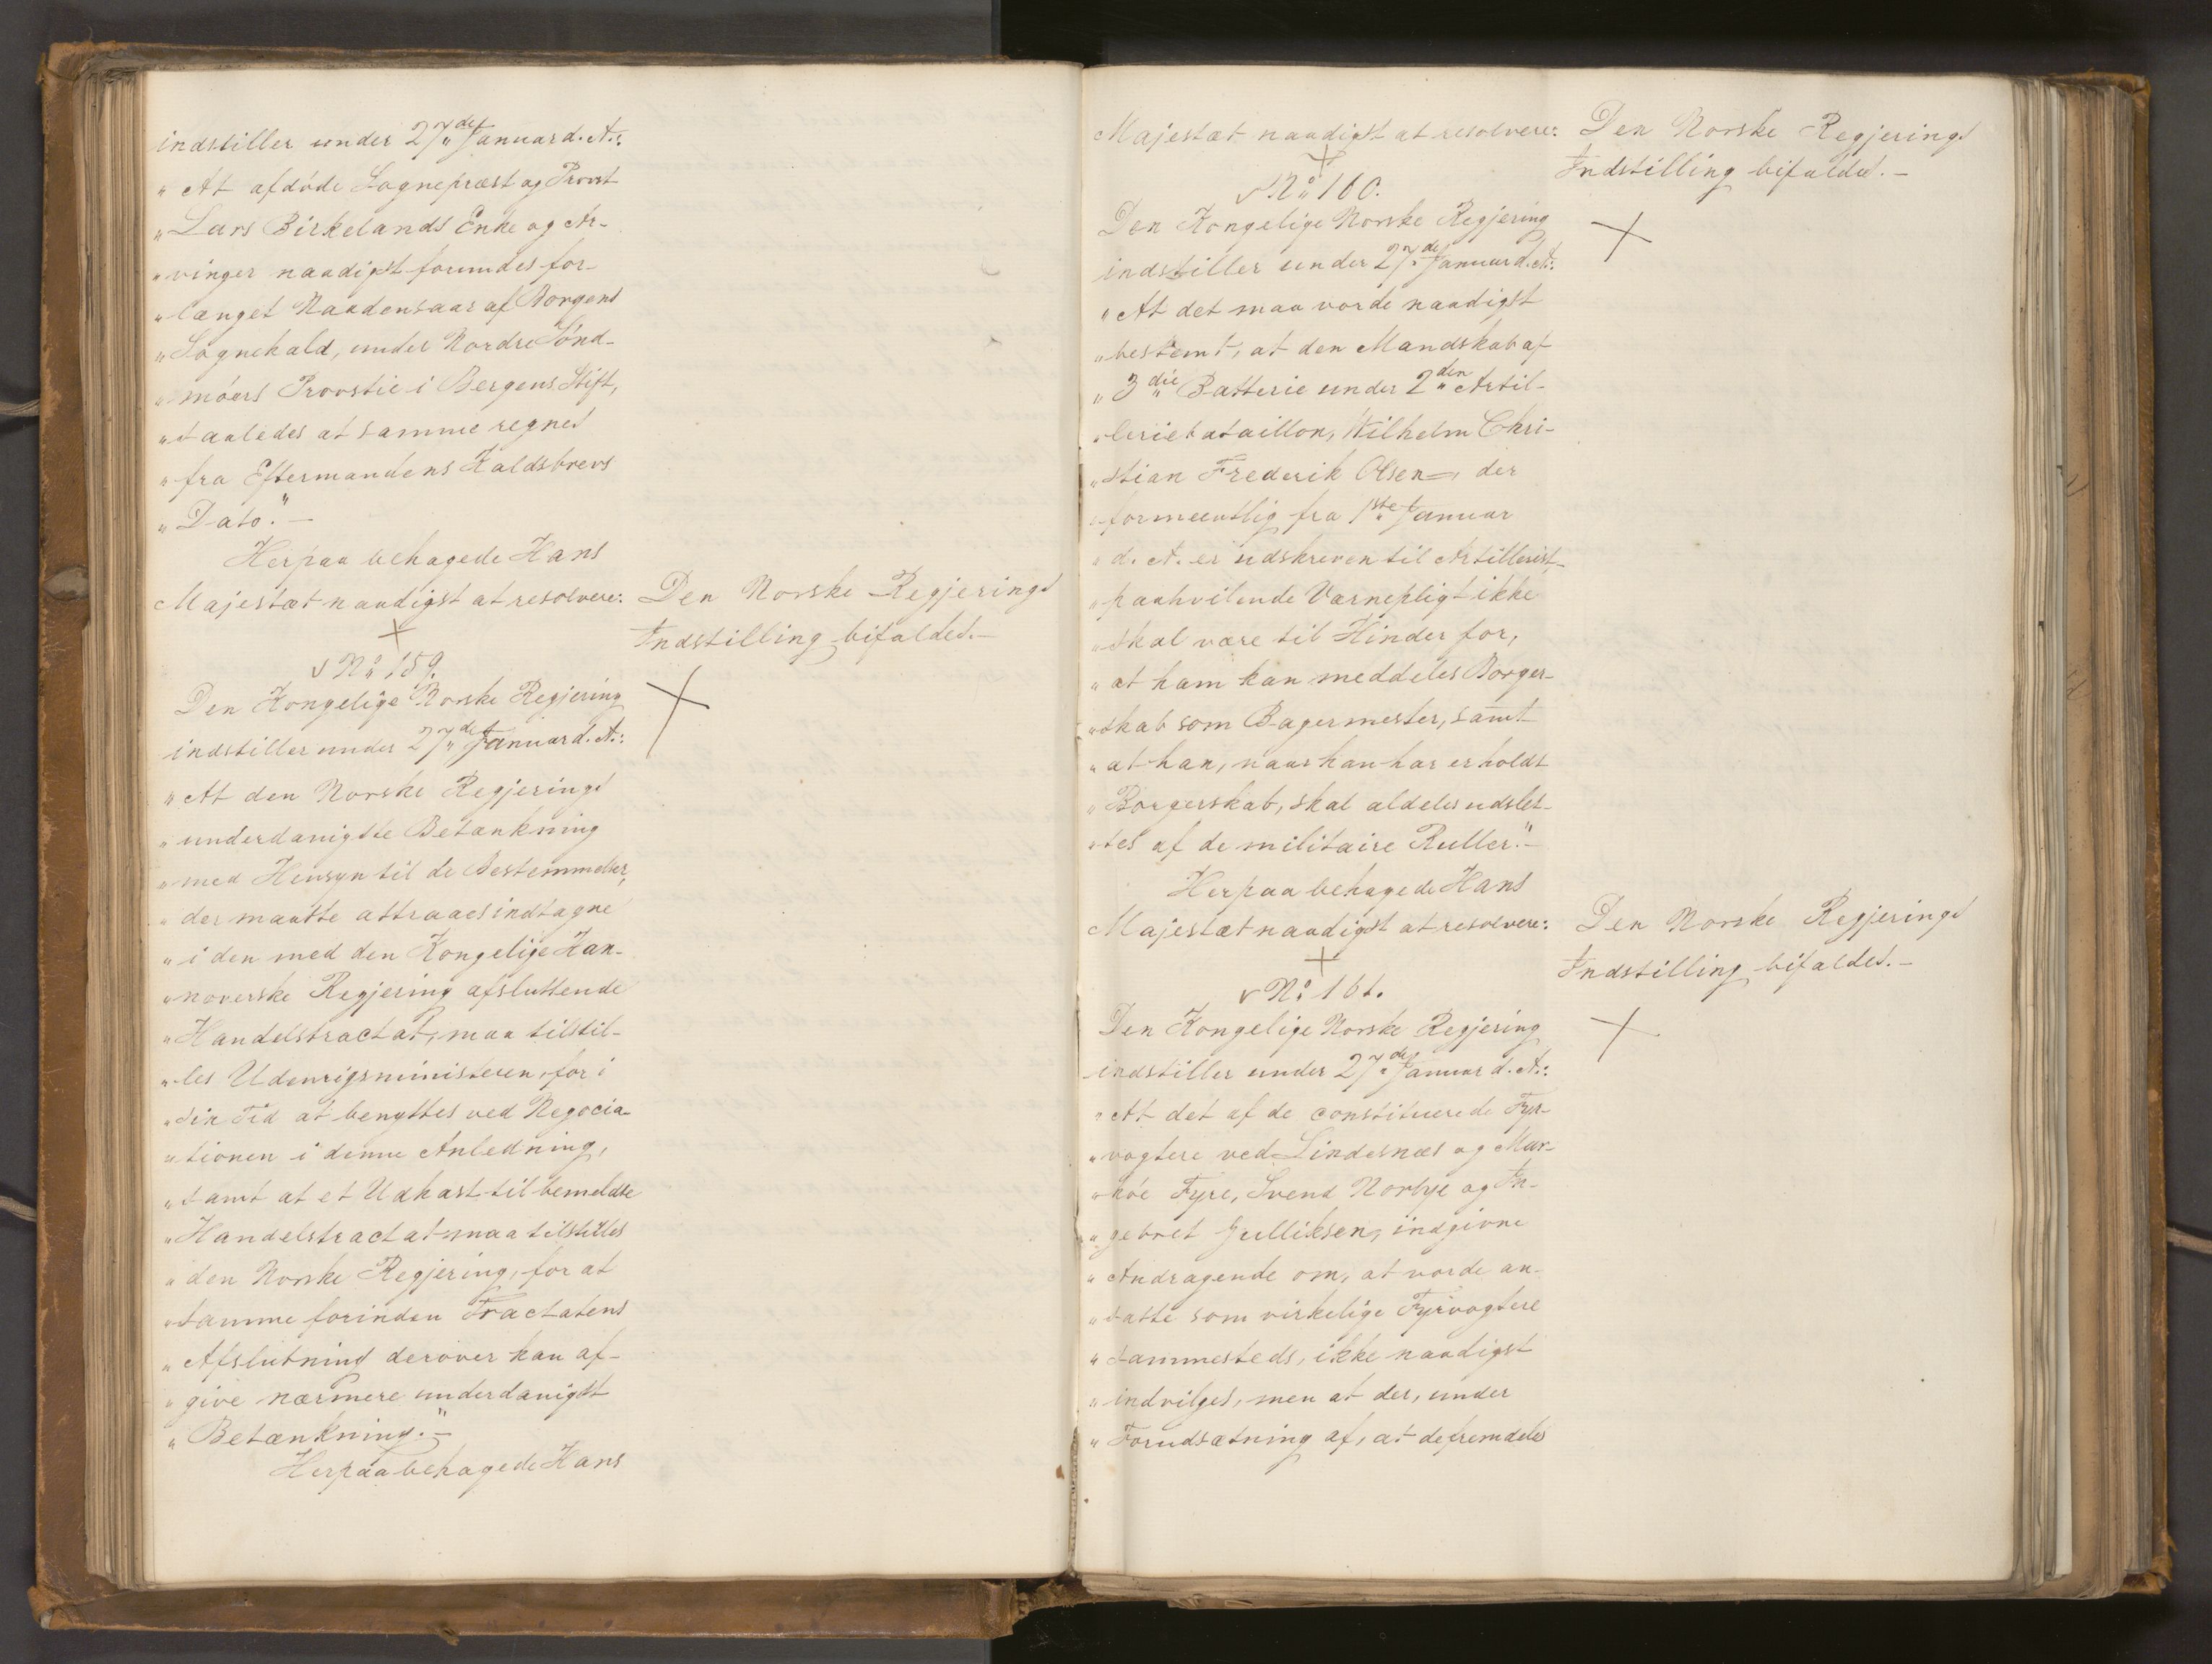 indstiller under 27de Januar d. A.:
„At afdöde Sognepræst og Provst
„Lars Birkelands Enke og Ar-
„vinger naadigst forundes for-
„længet Naadensaar af Borgens
„Sognekald, under Nordre Sönd-
„möers Provstie i Bergens Stift,
„saaledes at samme regnes
„fra Eftermandens Kaldsbrevs
„Dato."—
Herpaa behagede Hans
Majestæt naadigst at resolvere:
Den Norske Regjerings
Indstilling bifaldes.—
No 159.
Den Kongelige Norske Regjering
indstiller under 27de Januar d. A.:
„At den Norske Regjerings
„underdanigste Betænkning
„med Hensyn til de Bestemmelser,
„der maatte attraaes indtagne
„i den med den Kongelige Han-
„noverske Regjering afsluttende
„Handelstractat, maa tilstil-
„les Udenrigsministeren, for i
„sin Tid at benyttes ved Negocia-
„tionen i denne Anledning,
„samt at et Udkast til bemeldte
„Handelstractat maa tilstilles
„den Norske Regjering, for at
„samme forinden Tractatens
„Afslutning derover kan af-
„give nærmere underdanigst
„Betænkning."—
Herpaa behagede Hans
Majestæt naadigst at resolvere:
Den Norske Regjerings
Indstilling bifaldes.—
No 160.
Den Kongelige Norske Regjering
indstiller under 27de Januar d. A.:
„At det maa vorde naadigst
„bestemt, at den Mandskab af
„3die Batterie under 2den Artil-
„leriebataillon, Wilhelm Chri-
„stian Frederik Olsen, der
„formeentlig fra 1ste Januar
„d. A. er udskreven til Artillerist,
„paahvilende Værnepligt ikke
„skal være til Hinder for,
„at ham kan meddeles Borger-
„skab som Bagermester, samt
„at han, naar han har erholdt
„Borgerskab, skal aldeles udslet-
„tes af de militaire Ruller."—
Herpaa behagede Hans
Majestæt naadigst at resolvere:
Den Norske Regjerings
Indstilling bifaldes.—
No 161.
Den Kongelige Norske Regjering
indstiller under 27de Januar d. A.:
„At det af de constituerede Fyr-
„vogtere ved Lindesnæs og Mar-
„köe Fyre, Svend Norbye og In-
„gebret Gulliksen, indgivne
„Andragende om, at vorde an-
„satte som virkelige Fyrvogtere
„sammesteds, ikke naadigst
„indvilges, men at der, under
„Forudsætning af, at de fremdeles